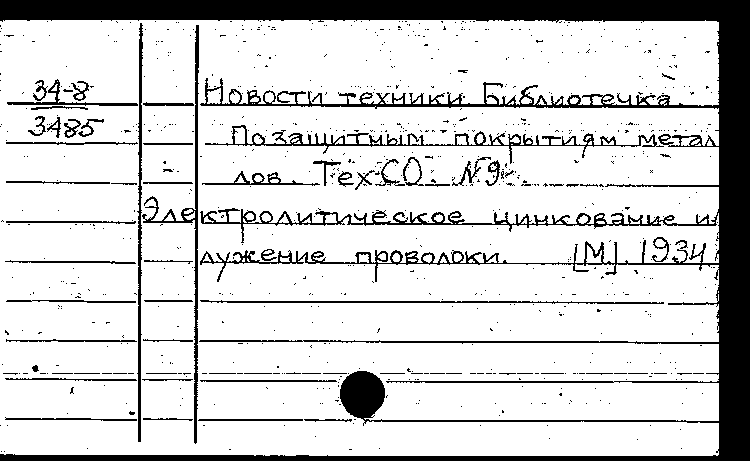 34-8
3485
Новости техники. Библиотечка.
По защитным покрытиям метал
лов. ТехСО. №9.
Электролитическое цинкование и
лужение проволоки. [М]. 1934